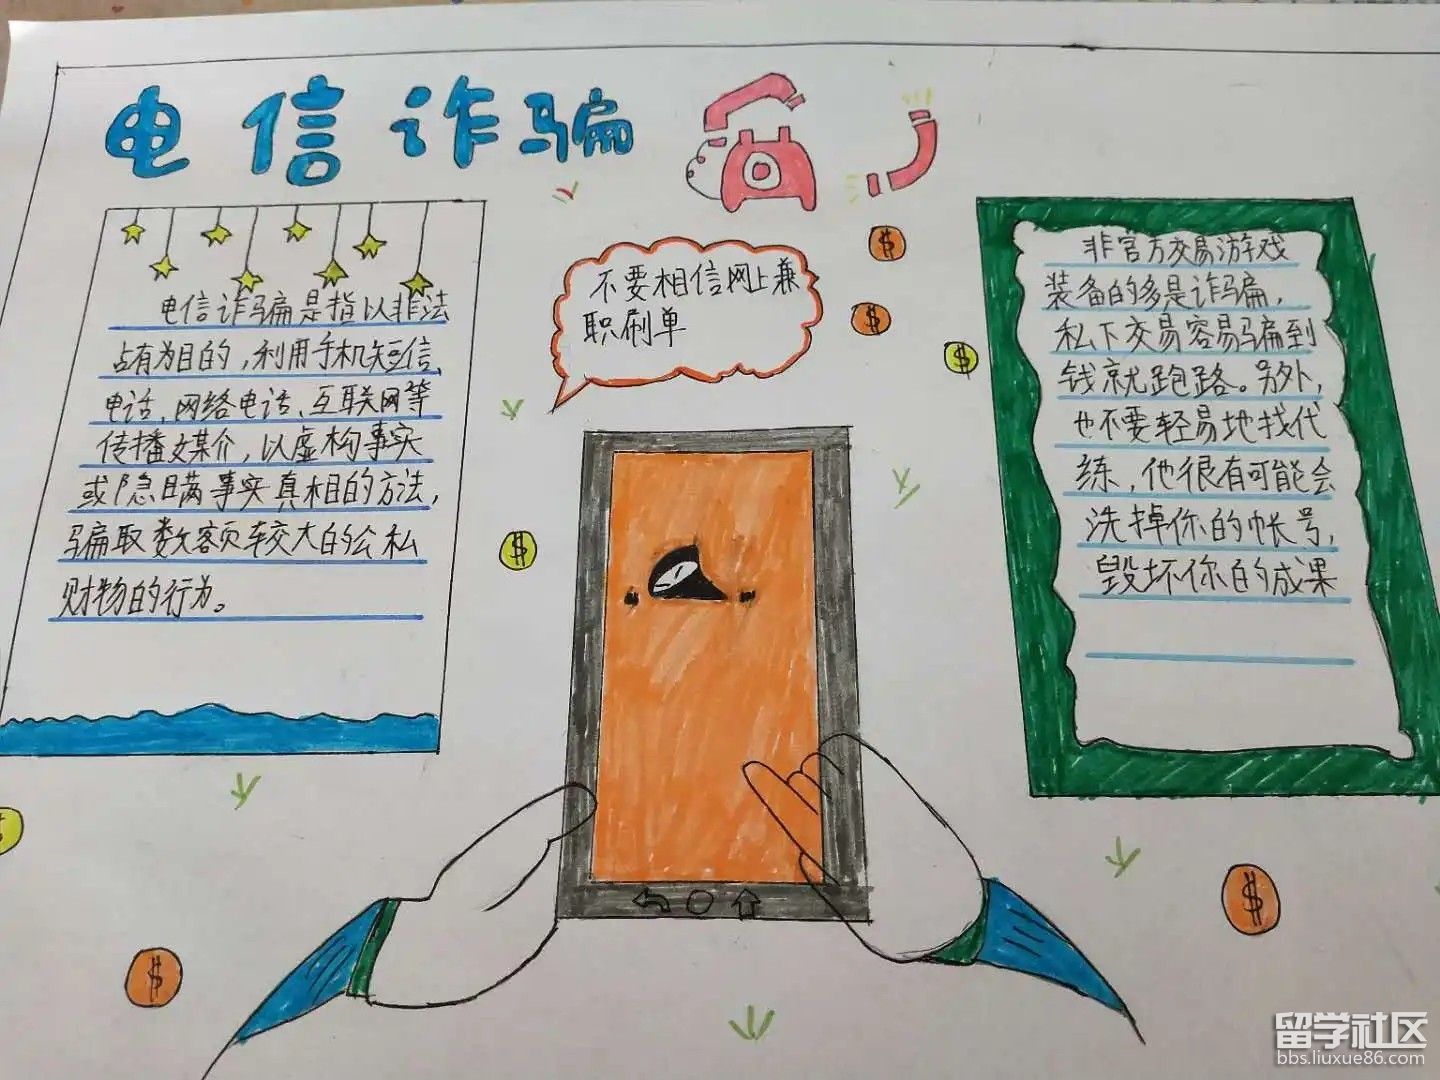 电信诈骗
电信诈骗是指以非法
占有为目的，利用手机短信、
电话、网络电话、互联网等
传播媒介，以虚构事实
或隐瞒事实真相的方法，
骗取数额较大的公私
财物的行为。
不要相信网上兼
职刷单
非官方交易游戏
装备的多是诈骗，
私下交易容易骗到
钱就跑路。另外，
也不要轻易地找代
练，他很有可能会
洗掉你的帐号，
毁坏你的成果
$
$
$
$
$
$
$
留学社区
bbs.liuxue86.com